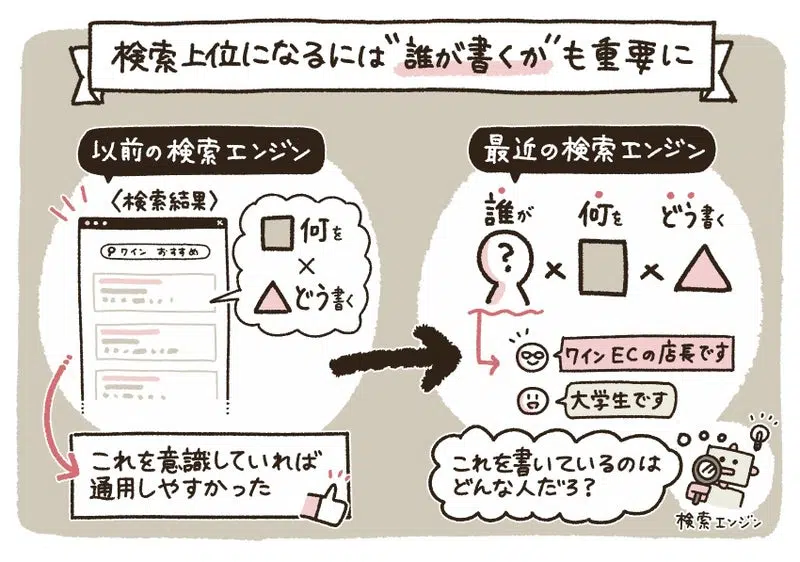 検索上位になるには"誰が書くか"も重要に
以前の検索エンジン
〈検索結果〉
ワイン おすすめ
何を
×
どう書く
これを意識していれば
通用しやすかった
最近の検索エンジン
誰が 何を どう書く
? × ×
ワインECの店長です
大学生です
これを書いているのは
どんな人だろ?
検索エンジン